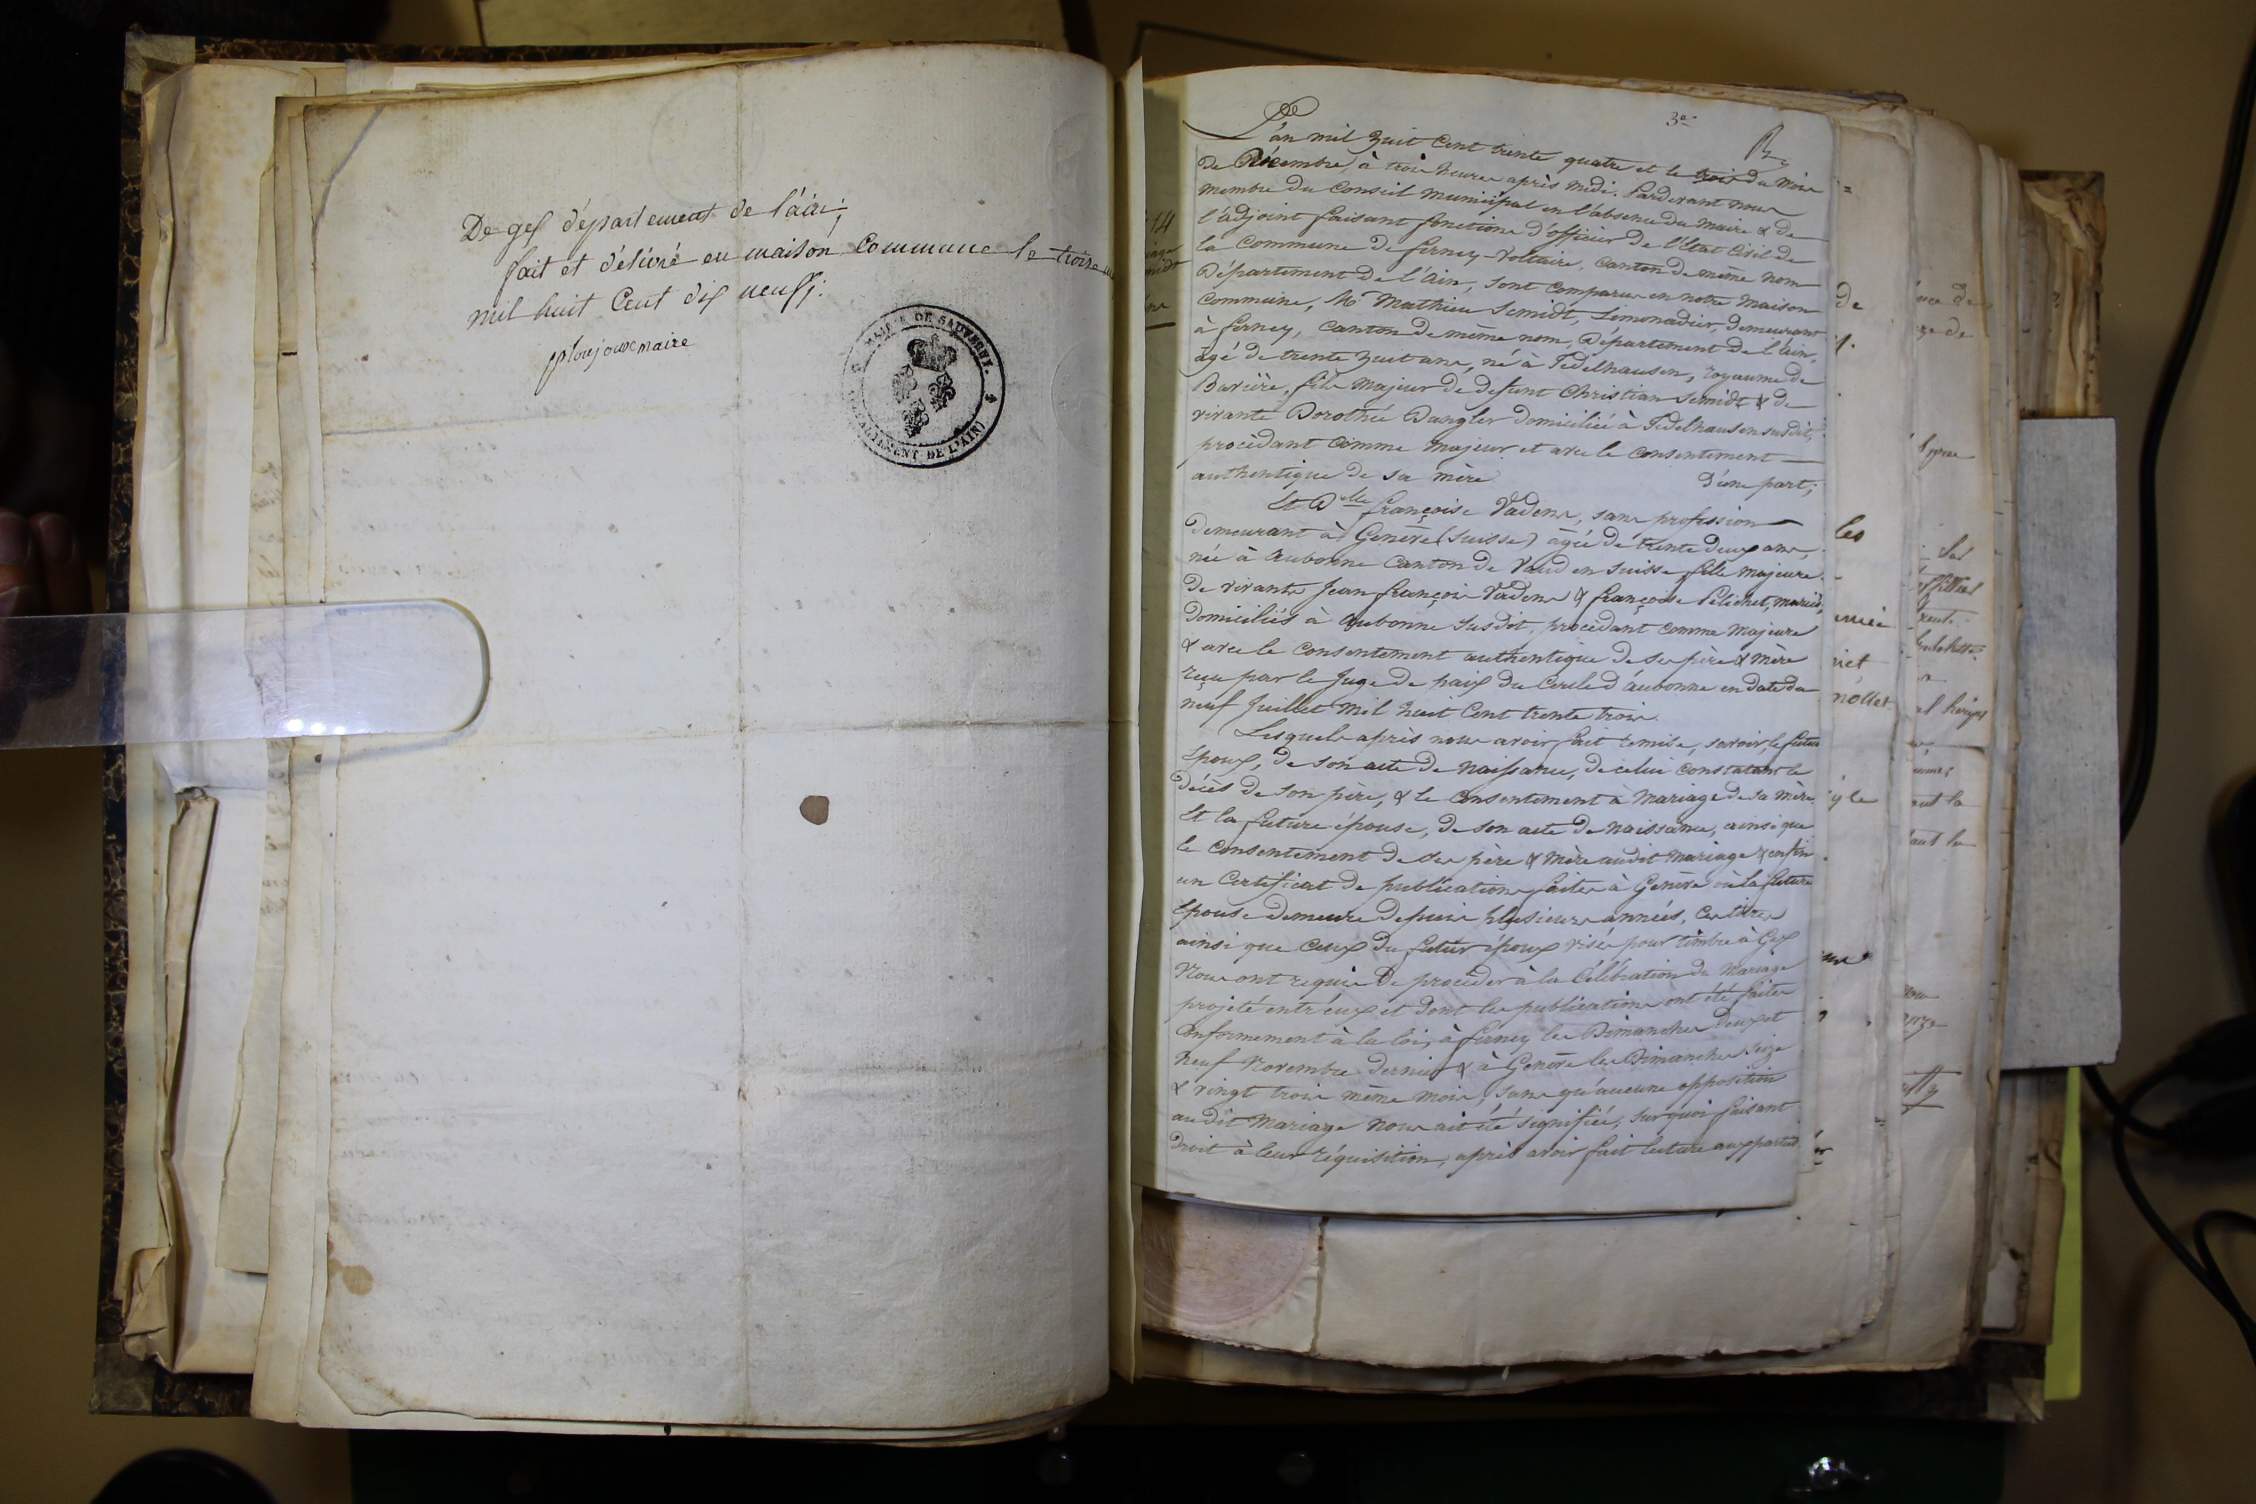 De gex département de l'ain;
fait et délivré en maison Commune le trois
mil huit Cent dix neuf;
plonjoux maire
MAIRIE DE SAUVERNI.
DE L'AIN)
3e
L'an mil huit Cent trente quatre et le trois du mois
de Décembre, à trois heures après midi. Pardevant nous
membre du Conseil Municipal en l'absence du Maire & de
l'adjoint faisant fonctions d'officier de l'Etat Civil de
la Commune de ferney-Voltaire, Canton de même nom
Département de l'Ain, sont comparus en notre maison
Commune, Mr Mathieu Semidt, Limonadier, demeurant
à ferney, Canton de même nom, Département de l'ain,
âgé de trente huit ans, né à Fedelhausen, royaume de
Bavière, fils majeur de defunt Christian Semidt & de
vivante Dorothée Dangler domiciliée à Fedelhausen susdit,
procédant comme majeur et avec le Consentement
authentique de sa mère D'une part;
Et Delle françoise Vadens, sans profession
demeurant à Genève (Suisse) âgée de trente deux ans,
née à Aubonne Canton de Vaud en Suisse, fille majeure
de vivants Jean françois Vadens & françoise Pelichet, mariés,
domiciliés à Aubonne susdit, procédant comme majeure
& avec le Consentement authentique de ses père & mère
reçu par le Juge de paix du Cercle d'aubonne en date du
neuf Juillet mil huit Cent trente trois.
Lesquels après nous avoir fait remise, savoir, le futur
époux, de son acte de Naissance, de celui constatant le
décès de son père, & le Consentement à Mariage de sa Mère
Et la future épouse, de son acte de Naissance, ainsi que
le consentement de ses père & mère audit mariage & enfin
un Certificat de publications faites à Genève où la future
épouse demeure depuis plusieurs années, Ces titres
ainsi que ceux du futur époux visés pour timbre à Gex
Nous ont requis de procéder à la Célébration du Mariage
projeté entr'eux et dont les publications ont été faites
Conformément à la loi, à ferney les Dimanches deux et
Neuf Novembre dernier & à Genève les Dimanches seize
& vingt trois même mois, sans qu'aucune opposition
au dit Mariage nous ait été signifiée, sur quoi faisant
droit à leur réquisition, après avoir fait lecture aux parties